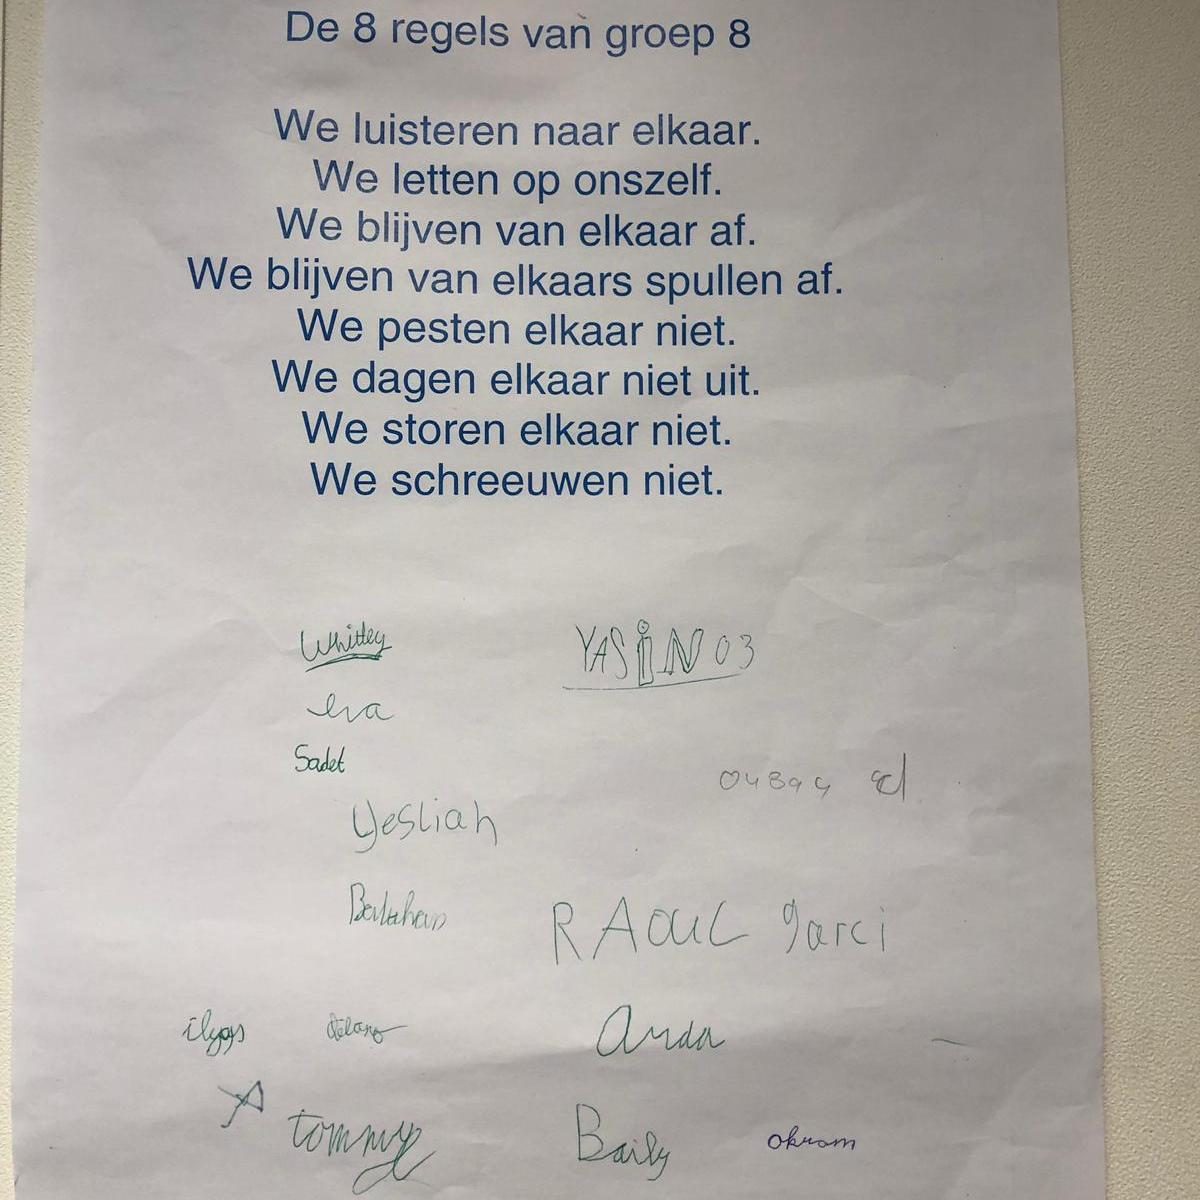 De 8 regels van groep 8
We luisteren naar elkaar.
We letten op onszelf.
We blijven van elkaar af.
We blijven van elkaars spullen af.
We pesten elkaar niet.
We dagen elkaar niet uit.
We storen elkaar niet.
We schreeuwen niet.
Whitley
YASiN03
eva
Sadet
Yesliah
RAOUL garci
delano
Arda
tommy
Baily
okram